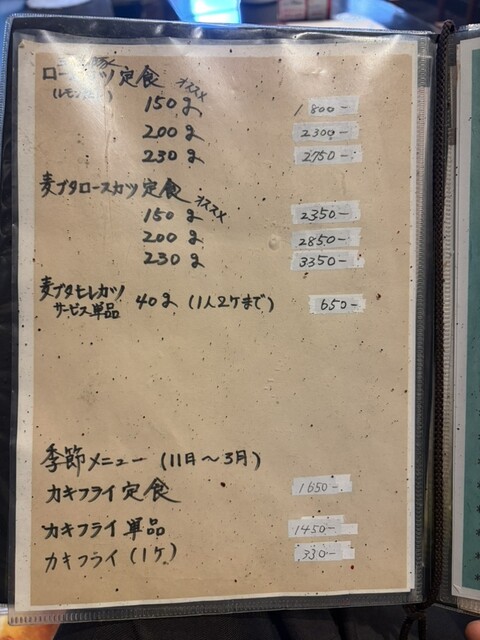 ロースカツ定食 オススメ
150g 1800-
200g 2300-
230g 2750-
麦ブタロースカツ定食 オススメ
150g 2350-
200g 2850-
230g 3350-
麦ブタヒレカツ 40g (1人2ケまで) 650-
サービス単品
季節メニュー (11日〜3月)
カキフライ定食 1650-
カキフライ単品 1450-
カキフライ (1ケ) 330-